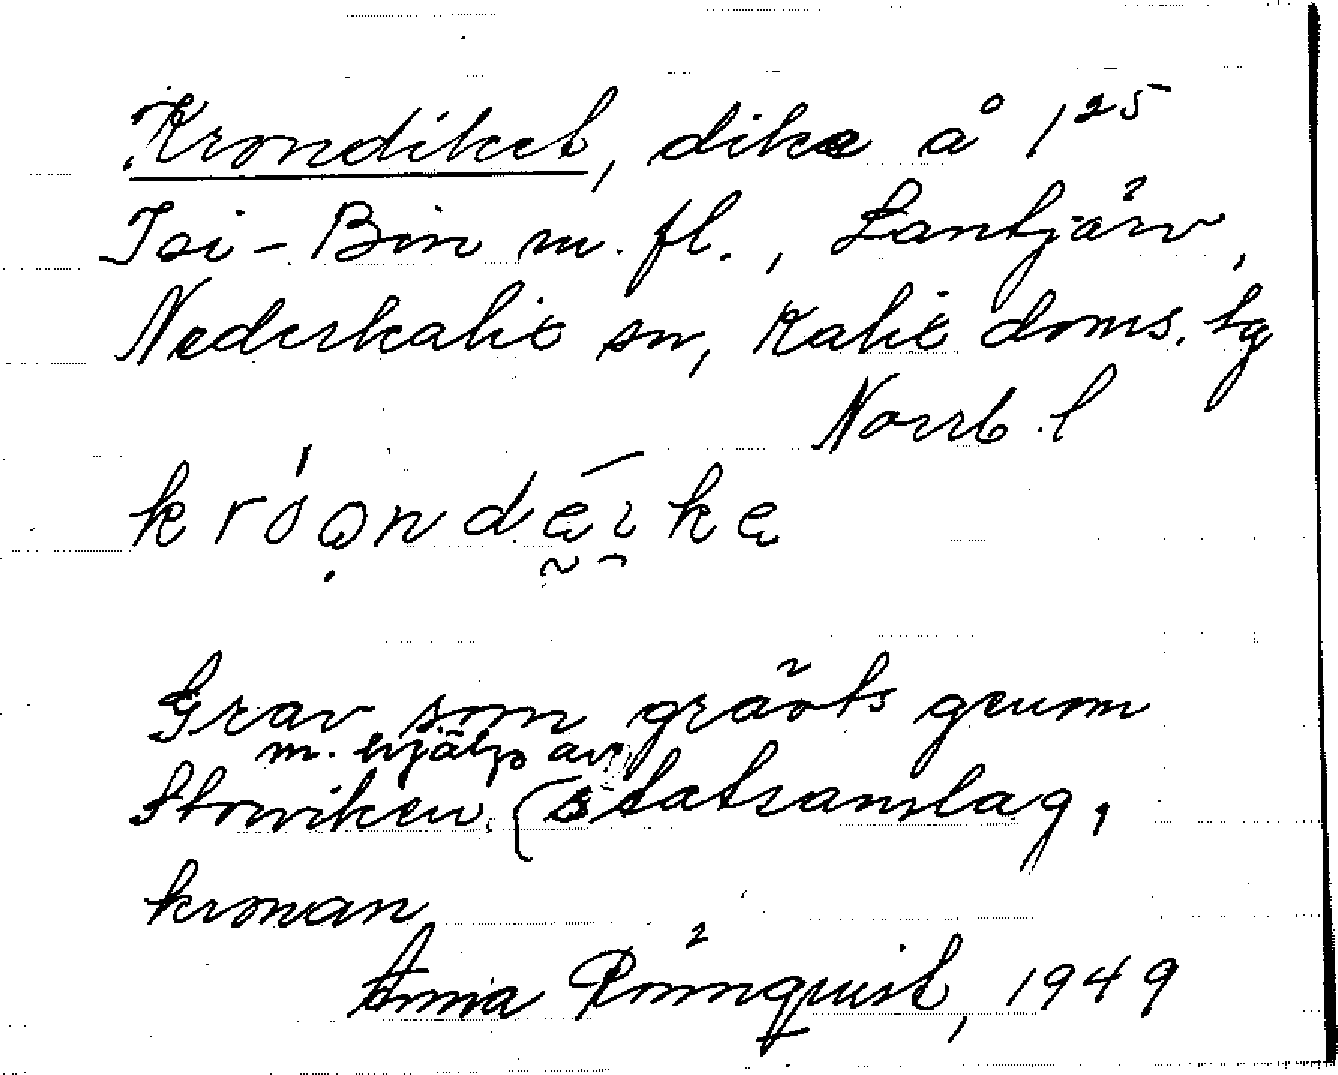 Krondiket, dike å 1²⁵
Isi-Bin m. fl., Lantjärv,
Nederkalix sn, Kalix doms. tg
Norrb. l
króọndēike
Grav som grävts genom
m. hjälp av
Storviken (statsanslag,
kronan
Anna Rönnquist, 1949